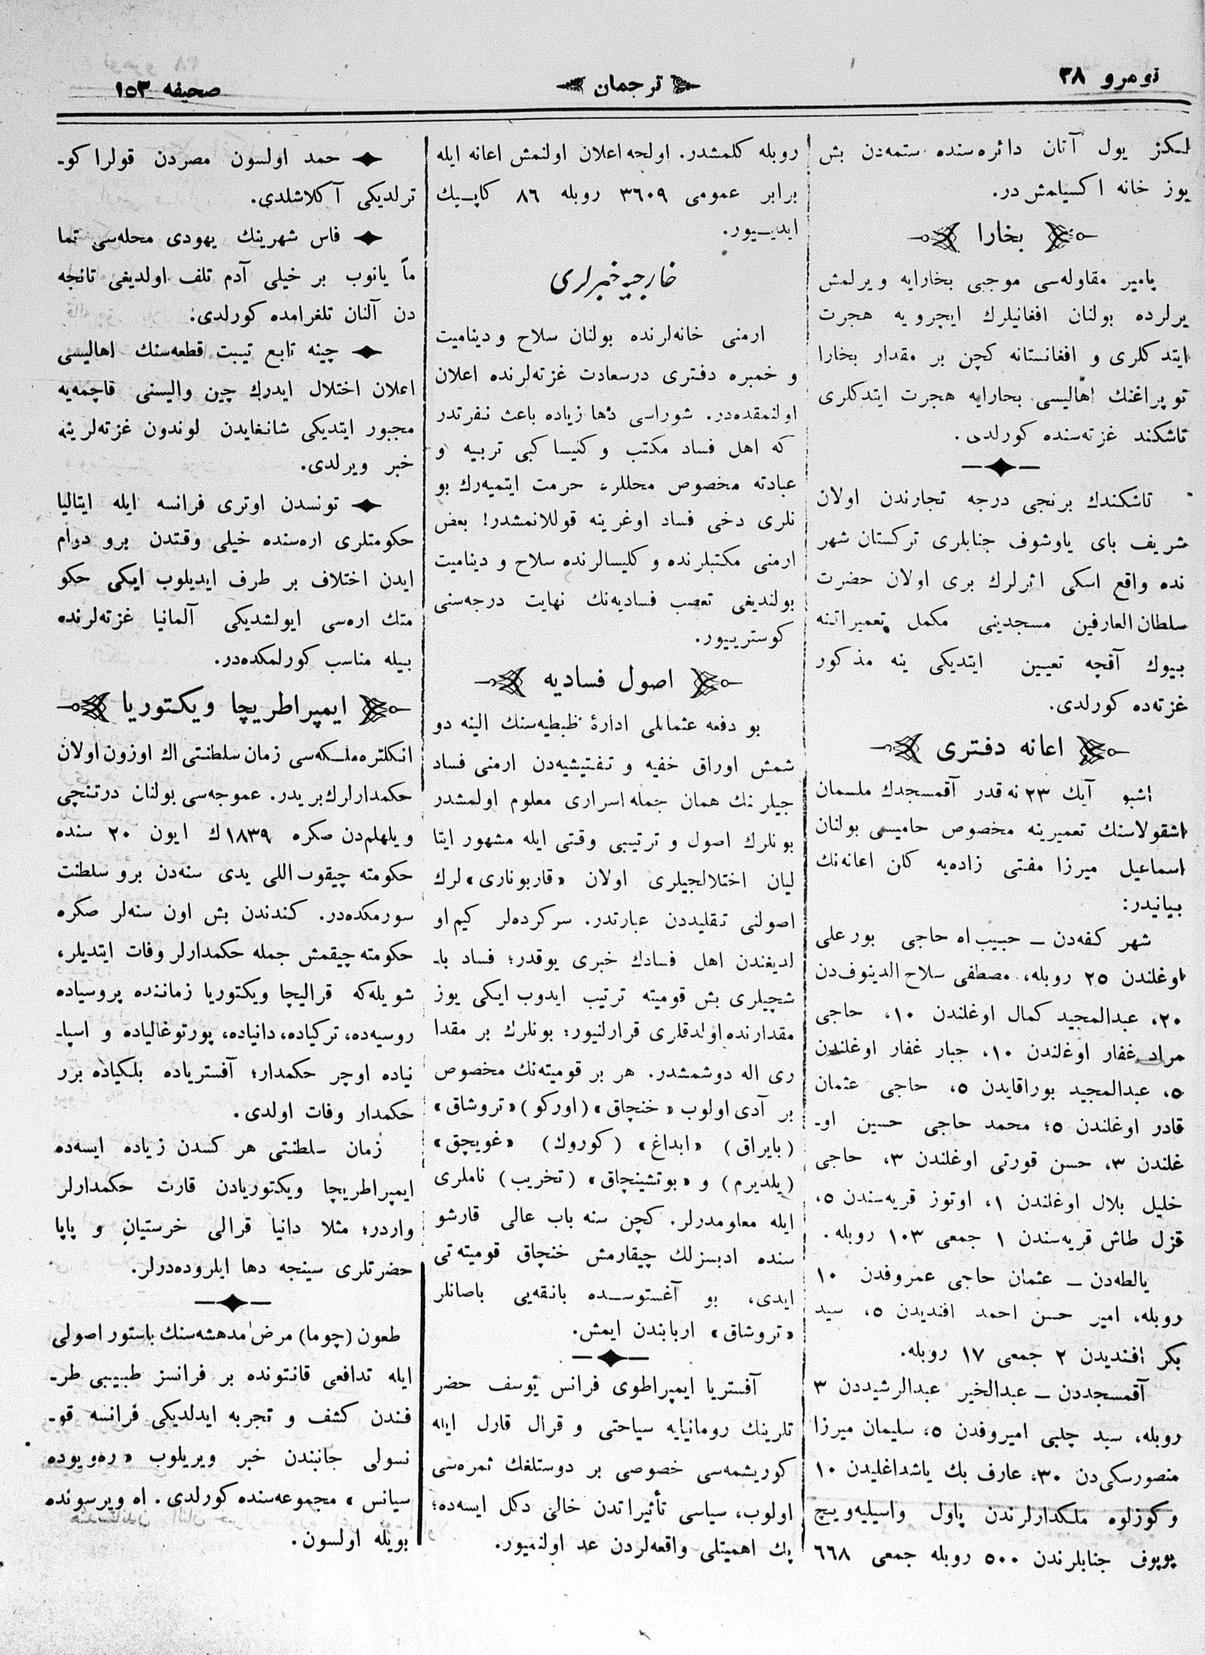 نومرو ٣٨
ترجمان
صحیفه ١٥٣
لـكز یول آتان دائره‌سنده ستمه‌دن بش
یوز خانه اكسیلمش در.
بخارا
پامیر مقاوله‌سی موجبی بخارایه ویرلمش
یرلرده بولنان افغانیلرك ایچرویه هجرت
ایتدكلری و افغانستانه كچن بر مقدار بخارا
توپراغنك اهالیسی بخارایه هجرت ایتدكلری
تاشكند غزته‌سنده كورلدی.
تاشكندك برنجی درجه تجارندن اولان
شریف بای یاوشوف جنابلری تركستان شهر
نده واقع اسكی اثرلرك بری اولان حضرت
سلطان العارفین مسجدینی مكمل تعمیراتنه
بیوك آقچه تعیین ایتدیكی ینه مذكور
غزته‌ده كورلدی.
اعانه دفتری
اشبو آیك ٢٣ نه قدر آقمسجدك ملسمان
اشقولاسنك تعمیرینه مخصوص حامیسی بولنان
اسماعیل میرزا مفتی زاده‌یه كان اعانه‌نك
بیانیدر:
شهر كفه‌دن — حبیب اه حاجی بورعلی
اوغلندن ٢٥ روبله، مصطفی سلاح الدینوفدن
٢٠، عبدالمجید كمال اوغلندن ١٠، حاجی
مراد غفار اوغلندن ١٠، جبار غفار اوغلندن
٥، عبدالمجید بوراقایدن ٥، حاجی عثمان
قادر اوغلندن ٥؛ محمد حاجی حسین او-
غلندن ٣، حسن قورتی اوغلندن ٣، حاجی
خلیل بلال اوغلندن ١، اوتوز قریه‌سندن ٥،
قزل طاش قریه‌سندن ١ جمعی ١٠٣ روبله.
یالطه‌دن — عثمان حاجی عمروفدن ١٠
روبله، امیر حسن احمد افندیدن ٥، سید
بكر افندیدن ٢ جمعی ١٧ روبله.
آقمسجددن — عبدالخیر عبدالرشیددن ٣
روبله، سید چلبی امیروفدن ٥، سلیمان میرزا
منصورسكی‌دن ٣٠، عارف بك یاشداغلیدن ١٠
وكوزلوه ملكدارلرندن پاول واسیلیه‌ویچ
پوپوف جنابلرندن ٥٠٠ روبله جمعی ٦٦٨
روبله كلمشدر. اولجه اعلان اولنمش اعانه ایله
برابر عمومی ٣٦٠٩ روبله ٨٦ كاپـیك
ایدیـیور.
خارجیه خبرلری
ارمنی خانه‌لرنده بولنان سلاح و دینامیت
و خمبره دفتری درسعادت غزته‌لرنده اعلان
اولنمقده‌در. شوراسی دها زیاده باعث نفرتدر
كه اهل فساد مكتب و كنیسا كبی تربیه و
عبادته مخصوص محللره حرمت ایتمیه‌رك بو
نلری دخی فساد اوغرینه قوللانمشدر! بعض
ارمنی مكتبلرنده و كلیسالرنده سلاح و دینامیت
بولندیغی تعصب فسادیه‌نك نهایت درجه‌سنی
كوستریـیور.
اصول فسادیه
بو دفعه عثمانلی ادارهٔ ظبطیه‌سنك الینه دو
شمش اوراق خفیه و تفتیشیه‌دن ارمنی فساد
جیلرنك همان جمله اسراری معلوم اولمشدر
بونلرك اصول و ترتیبی وقتی ایله مشهور ایتا
لیان اختلالجیلری اولان «قاربوناری» لرك
اصولنی تقلیددن عبارتدر. سركرده‌لر كیم او
لدیغندن اهل فسادك خبری یوقدر؛ فساد با-
شجیلری بش قومیته ترتیب ایدوب ایكی یوز
مقدارنده اولدقلری قرارلنیور؛ بونلرك بر مقدا
ری اله دوشمشدر. هر بر قومیته‌نك مخصوص
بر آدی اولوب «خنچاق» (اوركو) «تروشاق»
(بایراق) «ابداغ» (كوروك) «غویچق»
(یلدیرم) و «بوتشینچاق» (تخریب) ناملری
ایله معاومدرلر. كچن سنه باب عالی قارشو
سنده ادبسزلك چیقارمش خنچاق قومیته‌تی
ایدی، بو آغستوسـده بانقه‌یی باصانلر
«تروشاق» اربابندن ایمش.
آفستریا ایمپراطوی فرانس یوسف حضر
تلرینك رومانیایه سیاحتی و قرال قارل ایله
كوریشمه‌سی خصوصی بر دوستلغك ثمره‌سی
اولوب، سیاسی تأثیراتدن خالی دكل ایسه‌ده؛
پك اهمیتلی واقعه‌لردن عد اولنمیور.
حمد اولسون مصردن قولرا كو-
ترلدیكی آكلاشلدی.
فاس شهرینك یهودی محله‌سی تما
ماً یانوب بر خیلی آدم تلف اولدیغی تانجه
دن آلنان تلغرامده كورلدی:
چینه تابع تیبت قطعه‌سنك اهالیسی
اعلان اختلال ایدرك چین والیسنی قاچمه‌یه
مجبور ایتدیكی شانغایدن لوندون غزته‌لرینه
خبر ویرلدی.
تونسدن اوتری فرانسه ایله ایتالیا
حكومتلری اره‌سنده خیلی وقتدن برو دوام
ایدن اختلاف بر طرف ایدیلوب ایكی حكو
متك اره‌سی ایولشدیكی آلمانیا غزته‌لرنده
بیله مناسب كورلمكده‌در.
ایمپراطریچا ویكتوریا
انكلتره ملـكه‌سی زمان سلطنتی اك اوزون اولان
حكمدارلرك بریدر. عموجه‌سی بولنان درتنچی
ویلهلم‌دن صكره ١٨٣٩ك ایون ٢٠ سنده
حكومته چیقوب اللی یدی سنه‌دن برو سلطنت
سورمكده‌در. كندندن بش اون سنه‌لر صكره
حكومته چیقمش جمله حكمدارلر وفات ایتدیلر،
شویله‌كه قرالیچا ویكتوریا زماننده پروسیاده
روسیه‌ده، تركیاده، دانیاده، پورتوغالیاده و اسپا-
نیاده اوچر حكمدار؛ آفستریاده بلكیاده برر
حكمدار وفات اولدی.
زمان سلطنتی هر كسدن زیاده ایسه‌ده
ایمپراطریچا ویكتوریادن قارت حكمدارلر
واردر؛ مثلا دانیا قرالی خرستیان و پاپا
حضرتلری سینجه دها ایلروده‌درلر.
طعون (چوما) مرض مدهشه‌سنك باستور اصولی
ایله تدافعی قانتونده بر فرانسز طبیبی طر-
فندن كشف و تجربه ایدلدیكی فرانسه قو-
نسولی جانبندن خبر ویریلوب «ره‌ویوده
سیانس» مجموعه‌سنده كورلدی. اه ویرسونده
بویله اولسون.